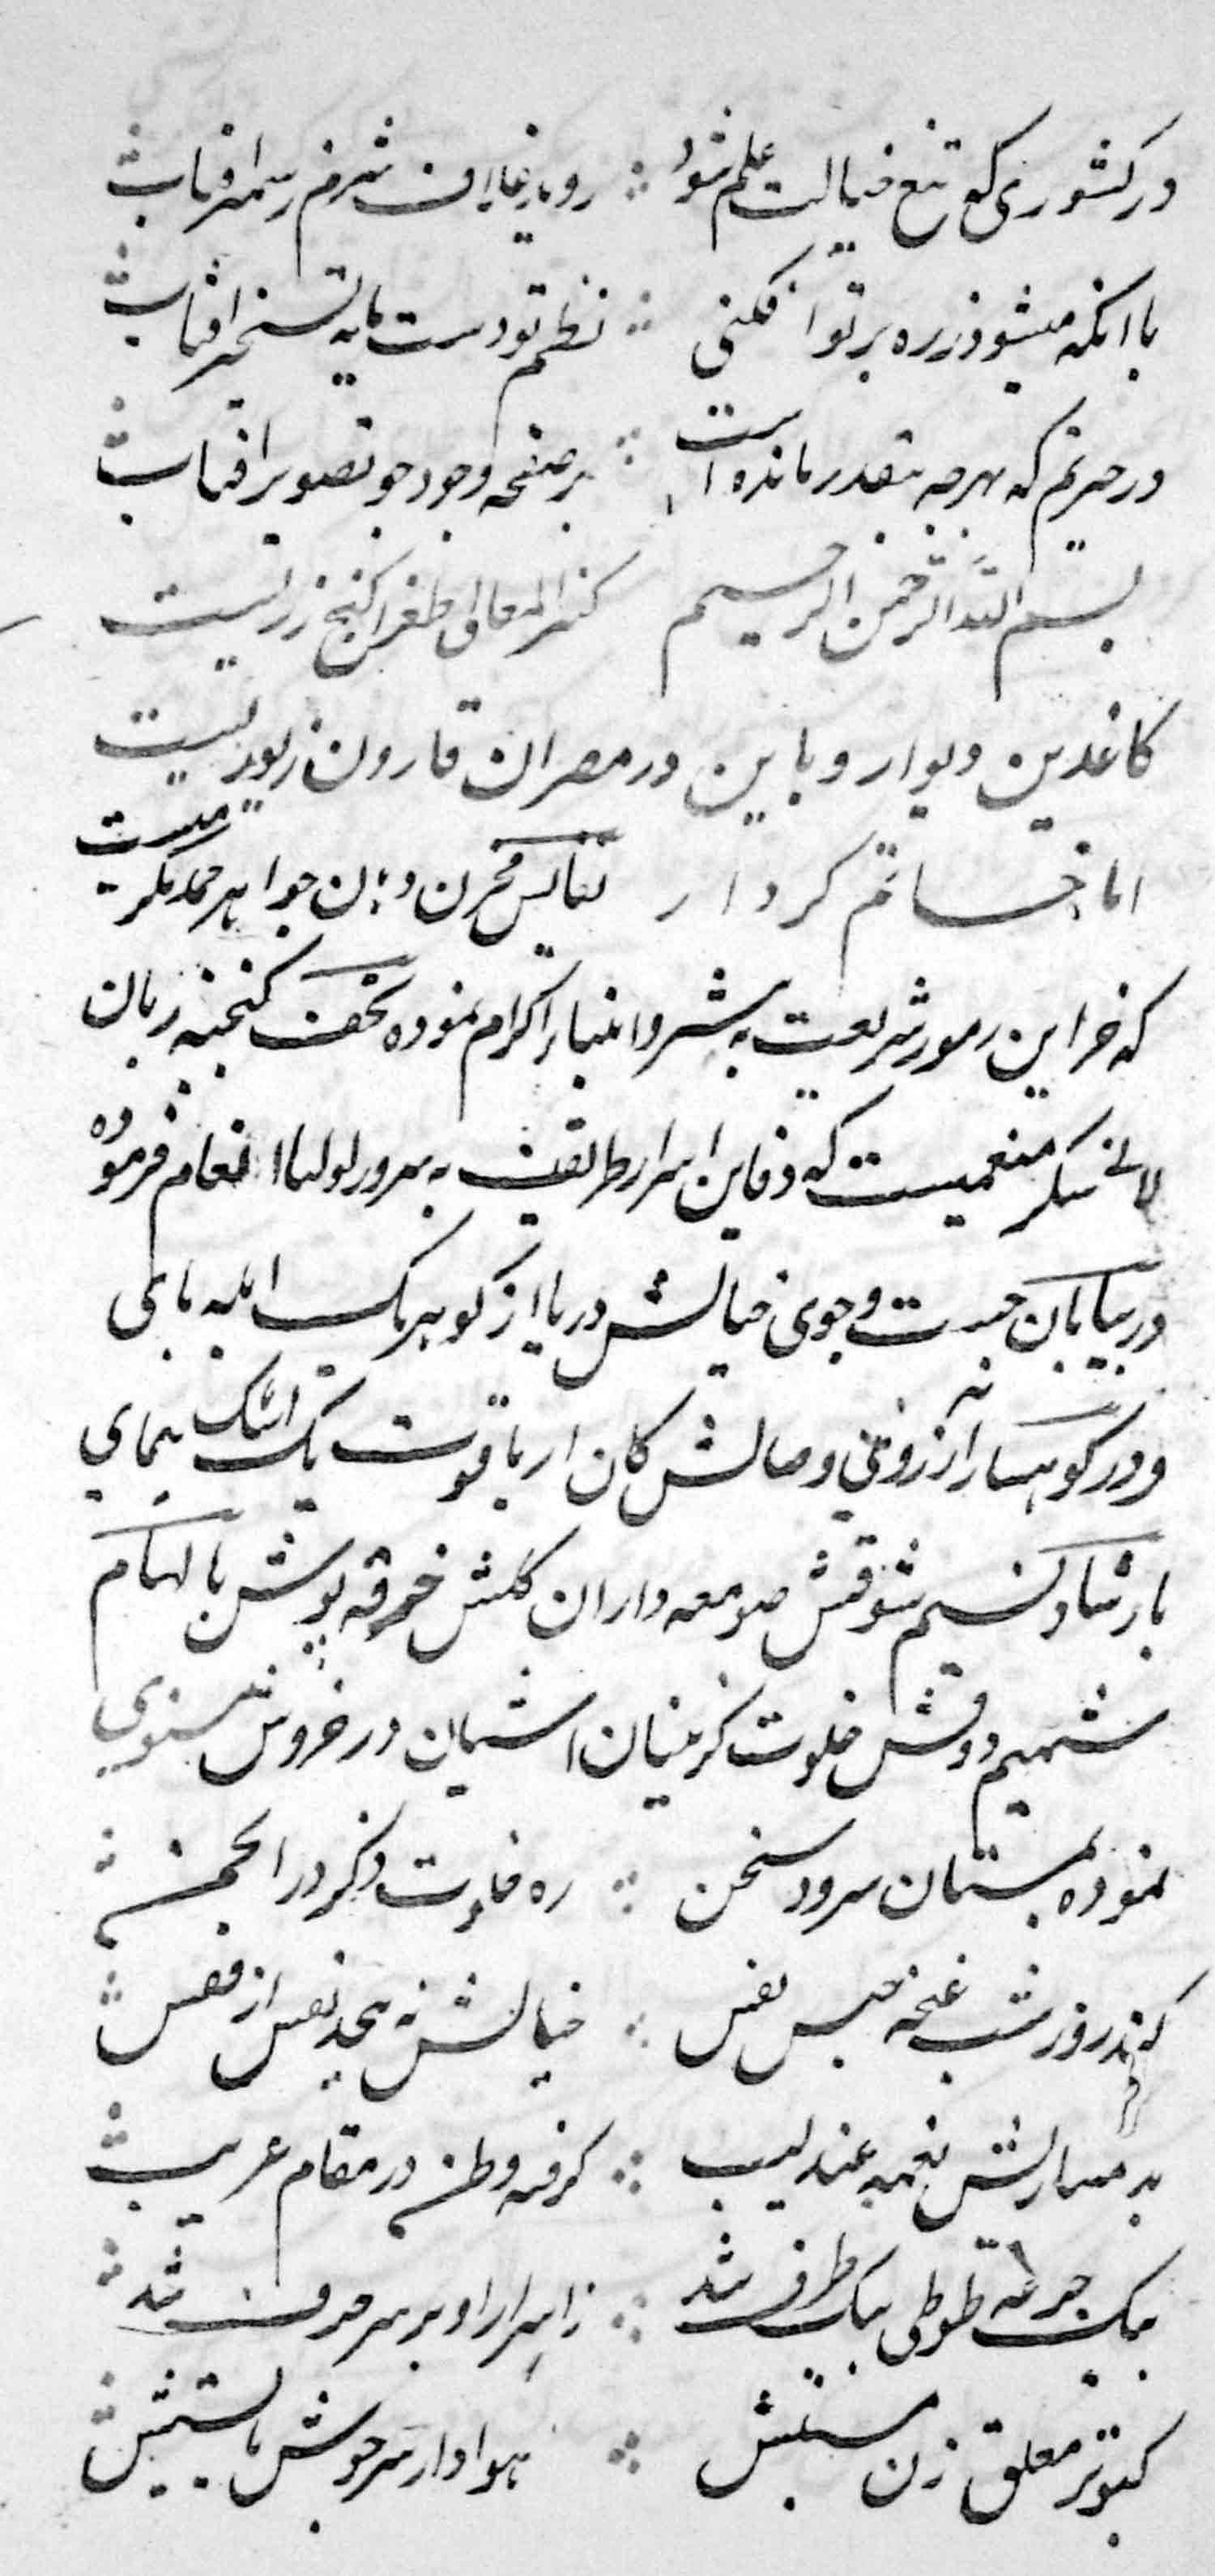 در کشوری که تیغ خیالت علم شود ∴ روباه غاران شرزم رسمر افتاب
با انکه میشود ذره پرتو افکنی ∴ نظم تو دست مایه تسخیر افتاب
در حیرتم که بهر چه بیقدر مانده است ∴ بر صفحه وجود چو تصویر افتاب
بسم الله الرحمن الرحیم کنز المعانی طغرا کنج زریست
کاغذین دیوار و با این در مصر ان قارون زیور نیست
اما خساتم کردار نفایس مخزن دهان جواهر حمد مکرمیست
که خزاین رموز شریعت به بشر و انبیا اکرام نموده تحف کنجینه زبان
لالی شکر منعمیست که دفاین اسرار طریقت به سرور اولیا انعام فرموده
در بیابان جست و جوی خیالش دریا از کوهر یک ابله پای
و در کوهسار ارزوی وصالش کان از یاقوت یک اشک نمای
بارشاد نسیم شوقش صومعه داران کلشن خرقه پوش بالهام
شمیم ذوقش خلوت کزینان اشیان در خروش مثنوی
نموده بمستان سرود سخن ∴ ره خلوت ذکر در انجمن
کند روز شب غنچه حبس نفس ∴ خیالش نه پیچد نفس از قفس
به مضمارش نغمه عندلیب ∴ کرفته وطن در مقام غریب
بیک جرعه طوطی بیک طرف شد ∴ ز اسرار او بر سر حرف شد
کبوتر معلق زن مستیش ∴ هوادار سرجوش هستیش